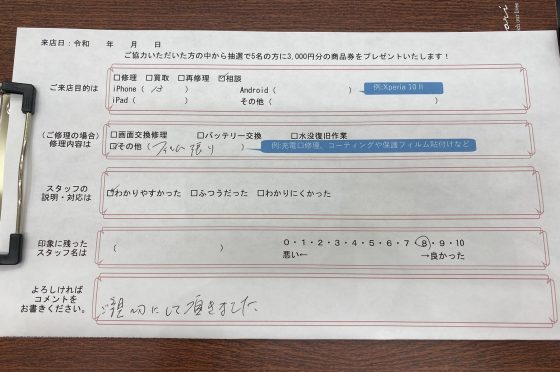 来店日：令和　　年　　月　　日
ご協力いただいた方の中から抽選で5名の方に3,000円分の商品券をプレゼントいたします！
ご来店目的は
□修理　□買取　□再修理　☑相談
iPhone（ 13 ）　Android（　　　　　）　例:Xperia 10 II
iPad（　　　　　）　その他（　　　　　）
（ご修理の場合）
修理内容は
□画面交換修理　□バッテリー交換　□水没復旧作業
☑その他（ フィルム張り ）　例:充電口修理、コーティングや保護フィルム貼付けなど
スタッフの
説明・対応は
☑わかりやすかった　□ふつうだった　□わかりにくかった
印象に残った
スタッフ名は
（　　　　　）
0・1・2・3・4・5・6・7・8・9・10
悪い←　→良かった
よろしければ
コメントを
お書きください。
ご親切にして頂きました